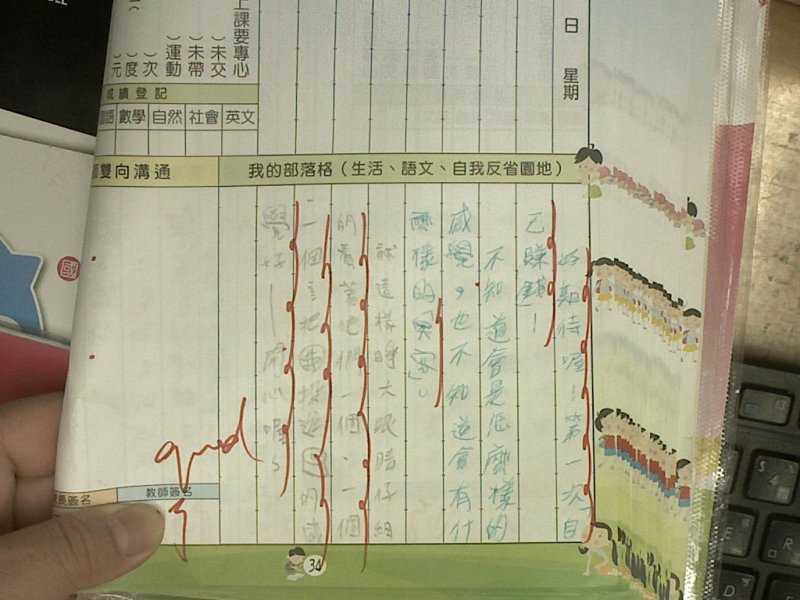 上課要專心
）未交
）未帶
）運動
）次
）度
元
日 星期
成績登記
數學
自然
社會
英文
雙向溝通
我的部落格（生活、語文、自我反省園地）
好期待喔！第一次自
己賺錢！
不知道會是怎麼樣的
感覺，也不知道會有什
麼樣的「買客」。
就這樣睜大眼睛仔細
的看著他們一個、一個
二個
投進
的感
覺好
開心喔
good
教師簽名
長簽名
34
國